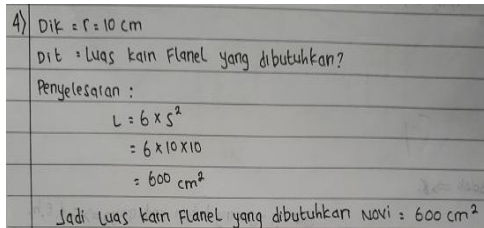 4) Dik = r = 10 cm
Dit : Luas kain Flanel yang dibutuhkan?
Penyelesaian :
L = 6 × s²
= 6 × 10 × 10
= 600 cm²
Jadi luas kain Flanel yang dibutuhkan Novi = 600 cm²